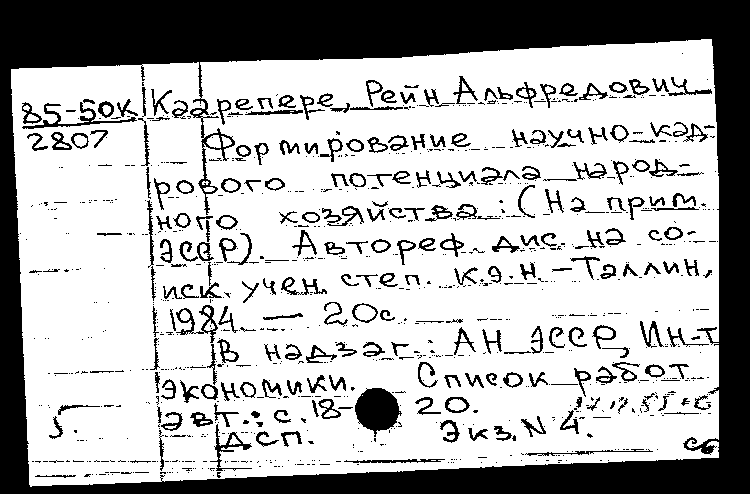 85-50К Каарепере, Рейн Альфредович
2807 Формирование научно-кад-
рового потенциала народ-
ного хозяйства : (На прим.
ЭССР). Автореф. дис. на со-
иск. учен. степ. к.э.н. – Таллин,
1984. — 20с.
В надзаг.: АН ЭССР, Ин-т
экономики. Список работ
авт.: с. 18-20.
ДСП. Экз. N 4.